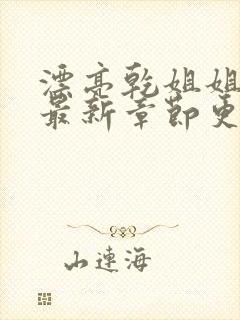 漂亮乾姐姐
最新章節更
山連海